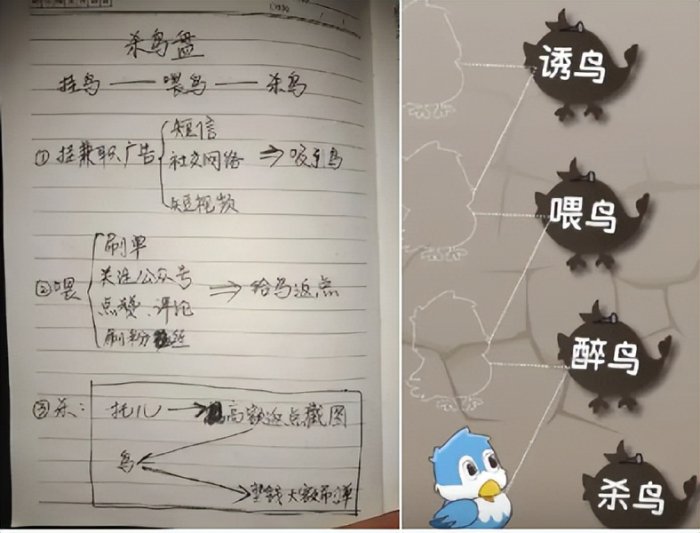 杀鸟盘
挂鸟——喂鸟——杀鸟
①挂兼职广告
短信
社交网络
短视频
⇒吸引鸟
②喂
刷单
关注公众号
点赞、评论
刷粉丝
⇒给鸟返点
③杀：
托儿→高额返点截图
鸟
垫钱大额刷单
诱鸟
喂鸟
醉鸟
杀鸟